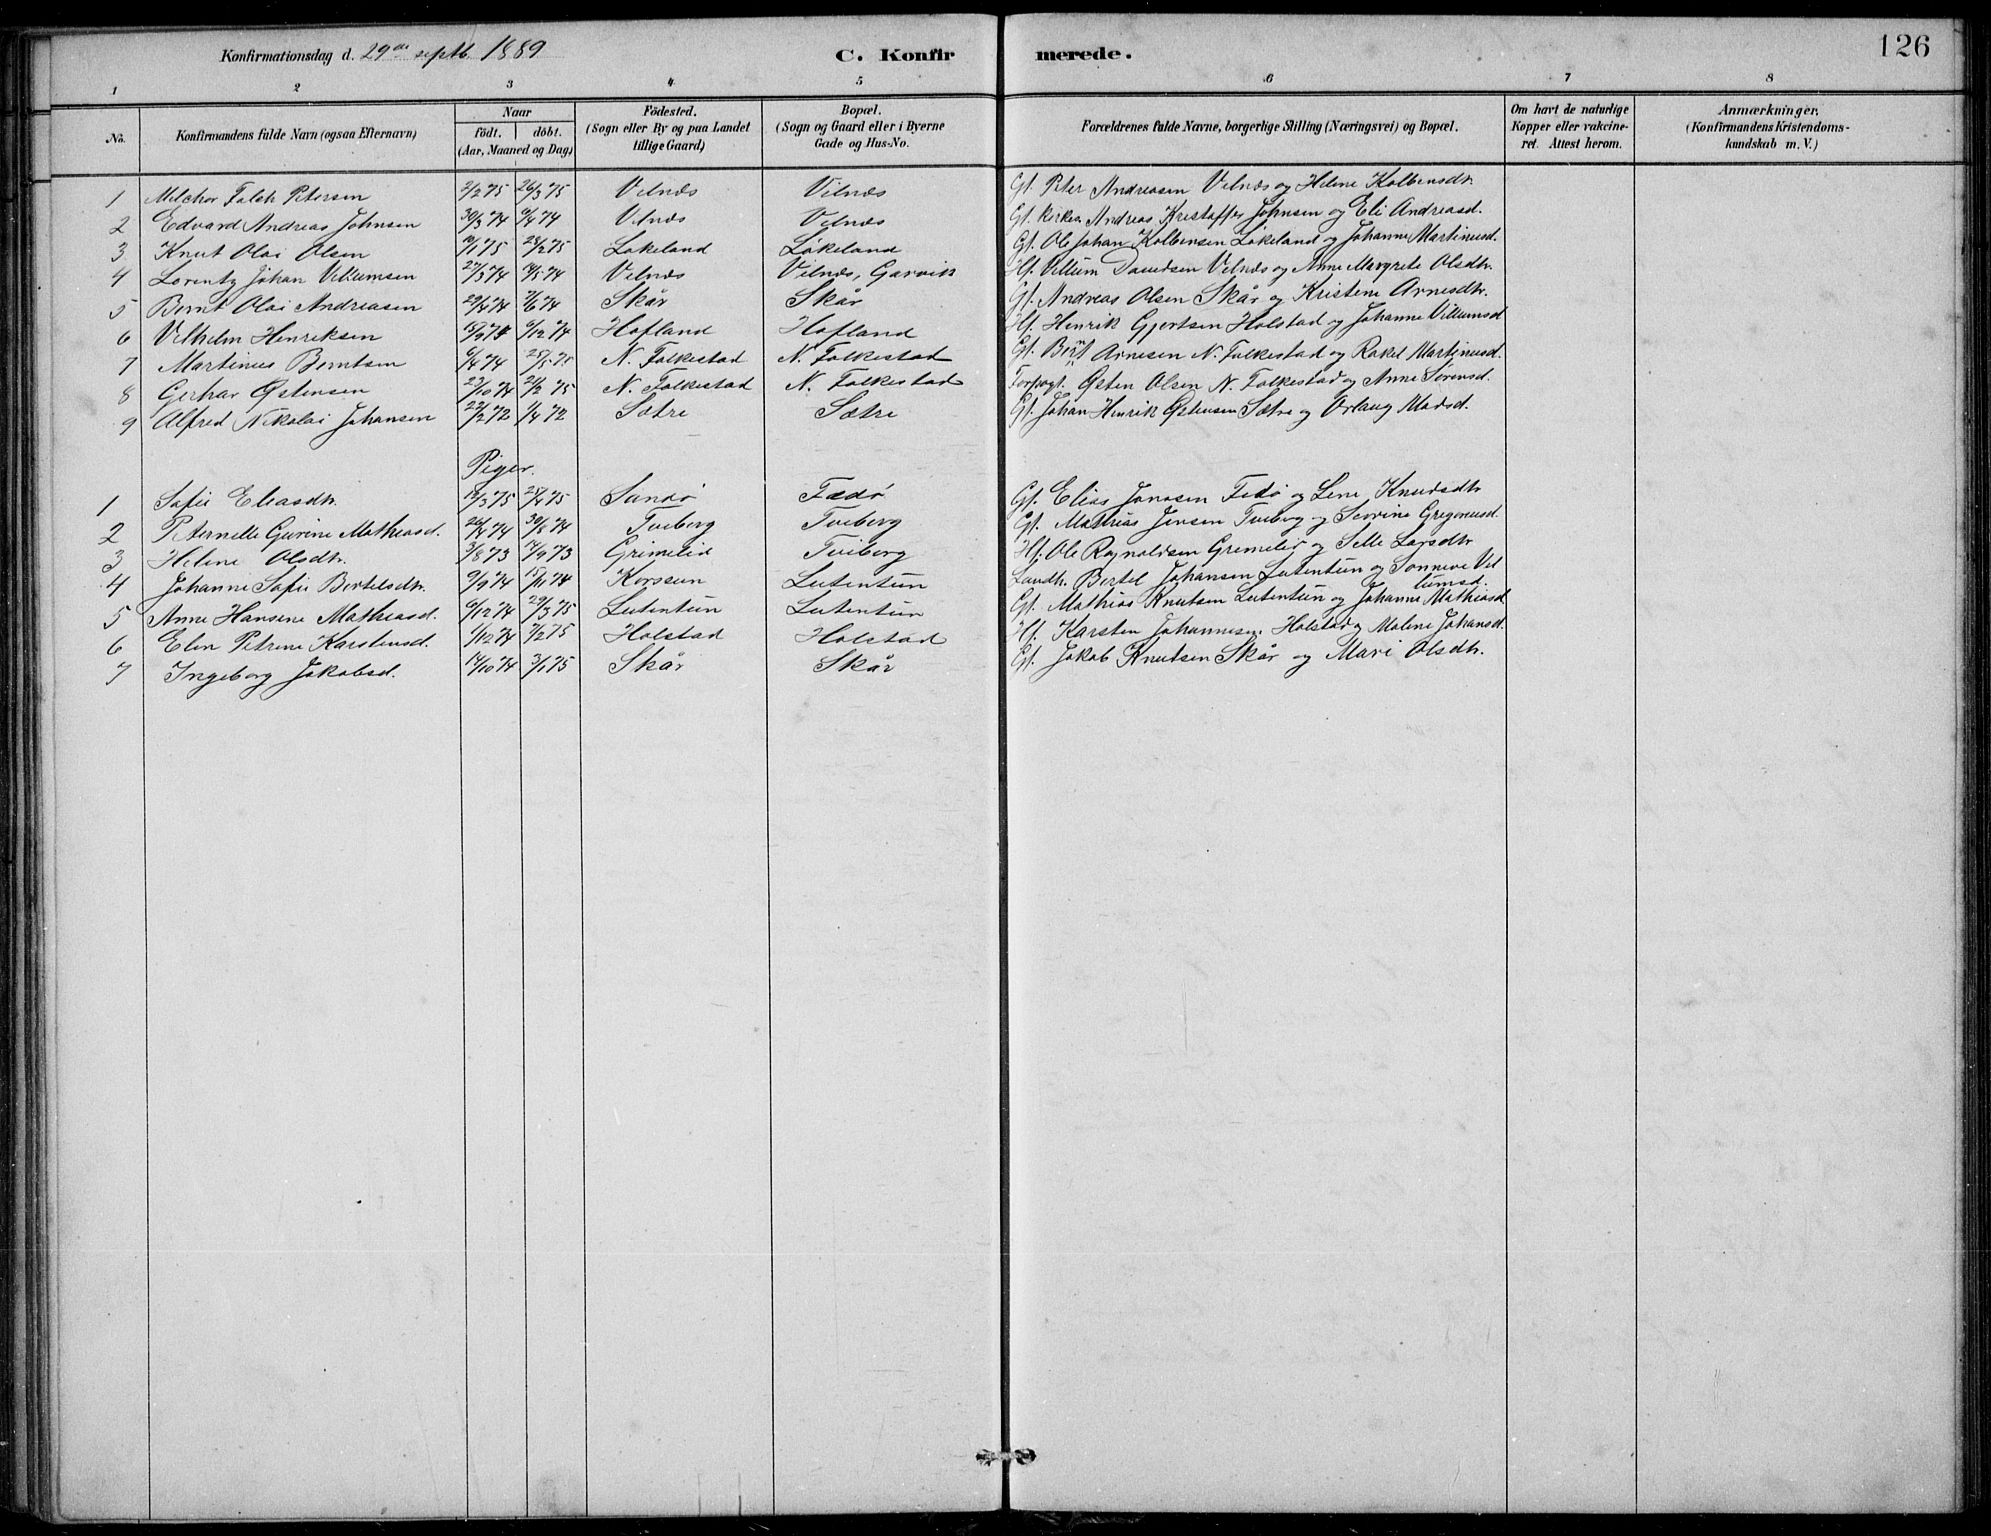 Konfirmationsdag d. 29de septb. 1889 C. Konfirmerede. 126
1 2 3 4 5 6 7 8
No. Konfirmandens fulde Navn (ogsaa Efternavn) Naar födt. döbt. (Aar, Maaned og Dag) Födested. (Sogn eller By og paa Landet tillige Gaard) Bopæl. (Sogn og Gaard eller i Byerne Gade og Hus-No. Forældrenes fulde Navne, borgerlige Stilling (Næringsvei) og Bopæl. Om havt de naturlige Kopper eller vakcineret. Attest herom. Anmærkninger. (Konfirmandens Kristendomskundskab m. V.)
1 Melchor Falch Petersen 2/2 75 26/3 75 Vilnæs Vilnæs Gf. Peter Andreasen Vilnæs og Helene Kolbensdtr.
2 Edvard Andreas Johnsen 30/3 74 6/4 74 Vilnæs Vilnæs Gf. Kirkes. Andreas Kristoffer Johnsen og Eli Andreasd.
3 Knut Olai Olsen 10/1 75 28/2 75 Løkeland Løkeland Gf. Ole Johan Kolbensen Løkeland og Johanne Martinusd.
4 Lorentz Johan Villumsen 27/3 74 /5 74 Vilnæs Vilnæs, Garvik Hf. Villum Davidsen Vilnæs og Anne Margrete Olsdtr.
5 Bernt Olai Andreasen 29/4 74 7/6 74 Skår Skår Gf. Andreas Olsen Skår og Kristene Arnesdtr.
6 Vilhelm Henriksen 15/9 74 6/12 74 Hofland Hofland Hf. Henrik Gjertsen Holstad og Johanne Villumsd
7 Martinus Berntsen 6/4 74 25/5 75 N. Folkestad N. Folkestad Gf. Bernt Arnesen N. Folkestad og Rakel Martinusd.
8 Gerhar Østensen 23/10 74 21/2 75 N. Folkestad N. Folkestad Forpagt. Østen Olsen N. Folkestad og Anne Sørensd.
9 Alfred Nikolai Johansen 22/2 72 1/4 72 Sætre Sætre Gf. Johan Henrik Østensen Sætre og Orlaug Madsd.
Piger.
1 Sofie Eliasdtr. 12/3 75 25/4 75 Sandø Fædø Gf. Elias Jonasen Fedø og Lene Knudsdtr
2 Peternelle Gurine Mathiasd. 26/4 74 30/8 74 Tviberg Tviberg Gf. Mathias Jensen Tviberg og Severine Gregoriusd.
3 Helene Olsdtr. 3/8 73 14/9 73 Grimelid Tviberg Hf. Ole Ragnoldsen Gremelid og Selle Larsdtr
4 Johanne Sofie Bertelsdtr. 9/9 74 15/11 74 Korssun Lutentun Landh. Bertel Johansen Lutentun og Sønneve Villumsd.
5 Anne Hansene Mathiasd. 6/12 74 29/3 75 Lutentun Lutentun Gf. Mathias Knutsen Lutentun og Johanne Mathiasd
6 Elen Petrine Karstensd. 1/12 74 7/2 75 Holstad Holstad Hf. Karsten Johannesen Holstad og Malene Johansd.
7 Ingeborg Jakobsd. 14/10 74 3/1 75 Skår Skår Gf. Jakob Knutsen Skår og Mari Olsdtr.